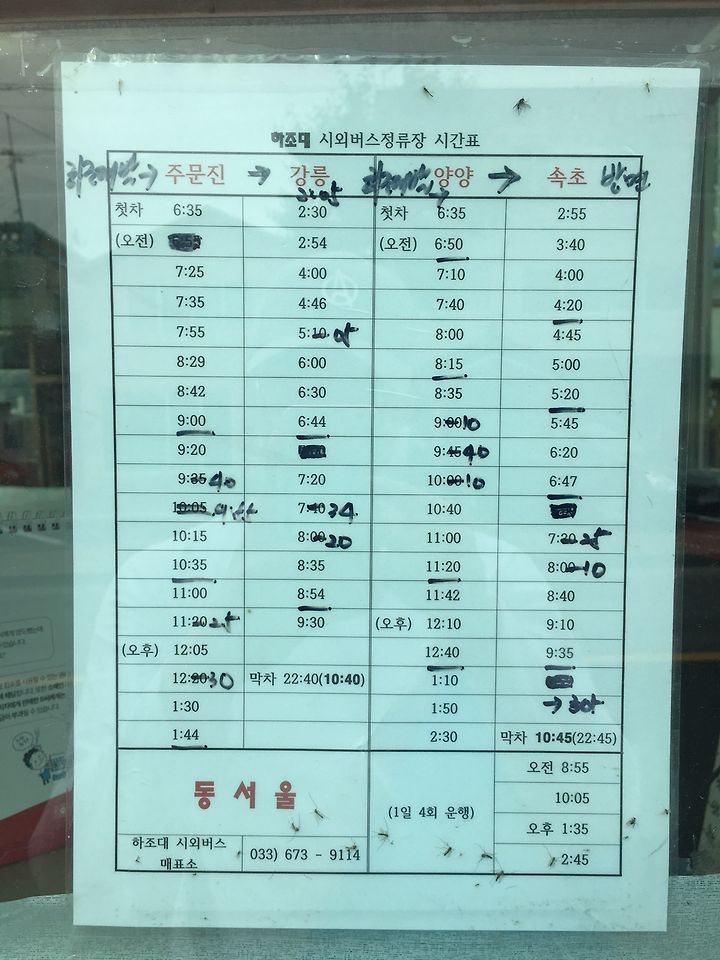 하조대 시외버스정류장 시간표
하조대발→ 주문진 → 강릉 하조대발→ 양양 → 속초 방면
첫차 6:35 2:30 첫차 6:35 2:55
(오전) 2:54 (오전) 6:50 3:40
7:25 4:00 7:10 4:00
7:35 4:46 7:40 4:20
7:55 5:10 8:00 4:45
8:29 6:00 8:15 5:00
8:42 6:30 8:35 5:20
9:00 6:44 9:00 10 5:45
9:20 9:45 40 6:20
9:35 40 7:20 10:00 10 6:47
10:05 7:40 34 10:40
10:15 8:00 20 11:00 7:20 25
10:35 8:35 11:20 8:00 10
11:00 8:54 11:42 8:40
11:20 25 9:30 (오후) 12:10 9:10
(오후) 12:05 12:40 9:35
12:20 30 막차 22:40(10:40) 1:10
1:30 1:50 →
1:44 2:30 막차 10:45(22:45)
동서울 (1일 4회 운행) 오전 8:55
10:05
오후 1:35
2:45
하조대 시외버스
매표소
033) 673 - 9114